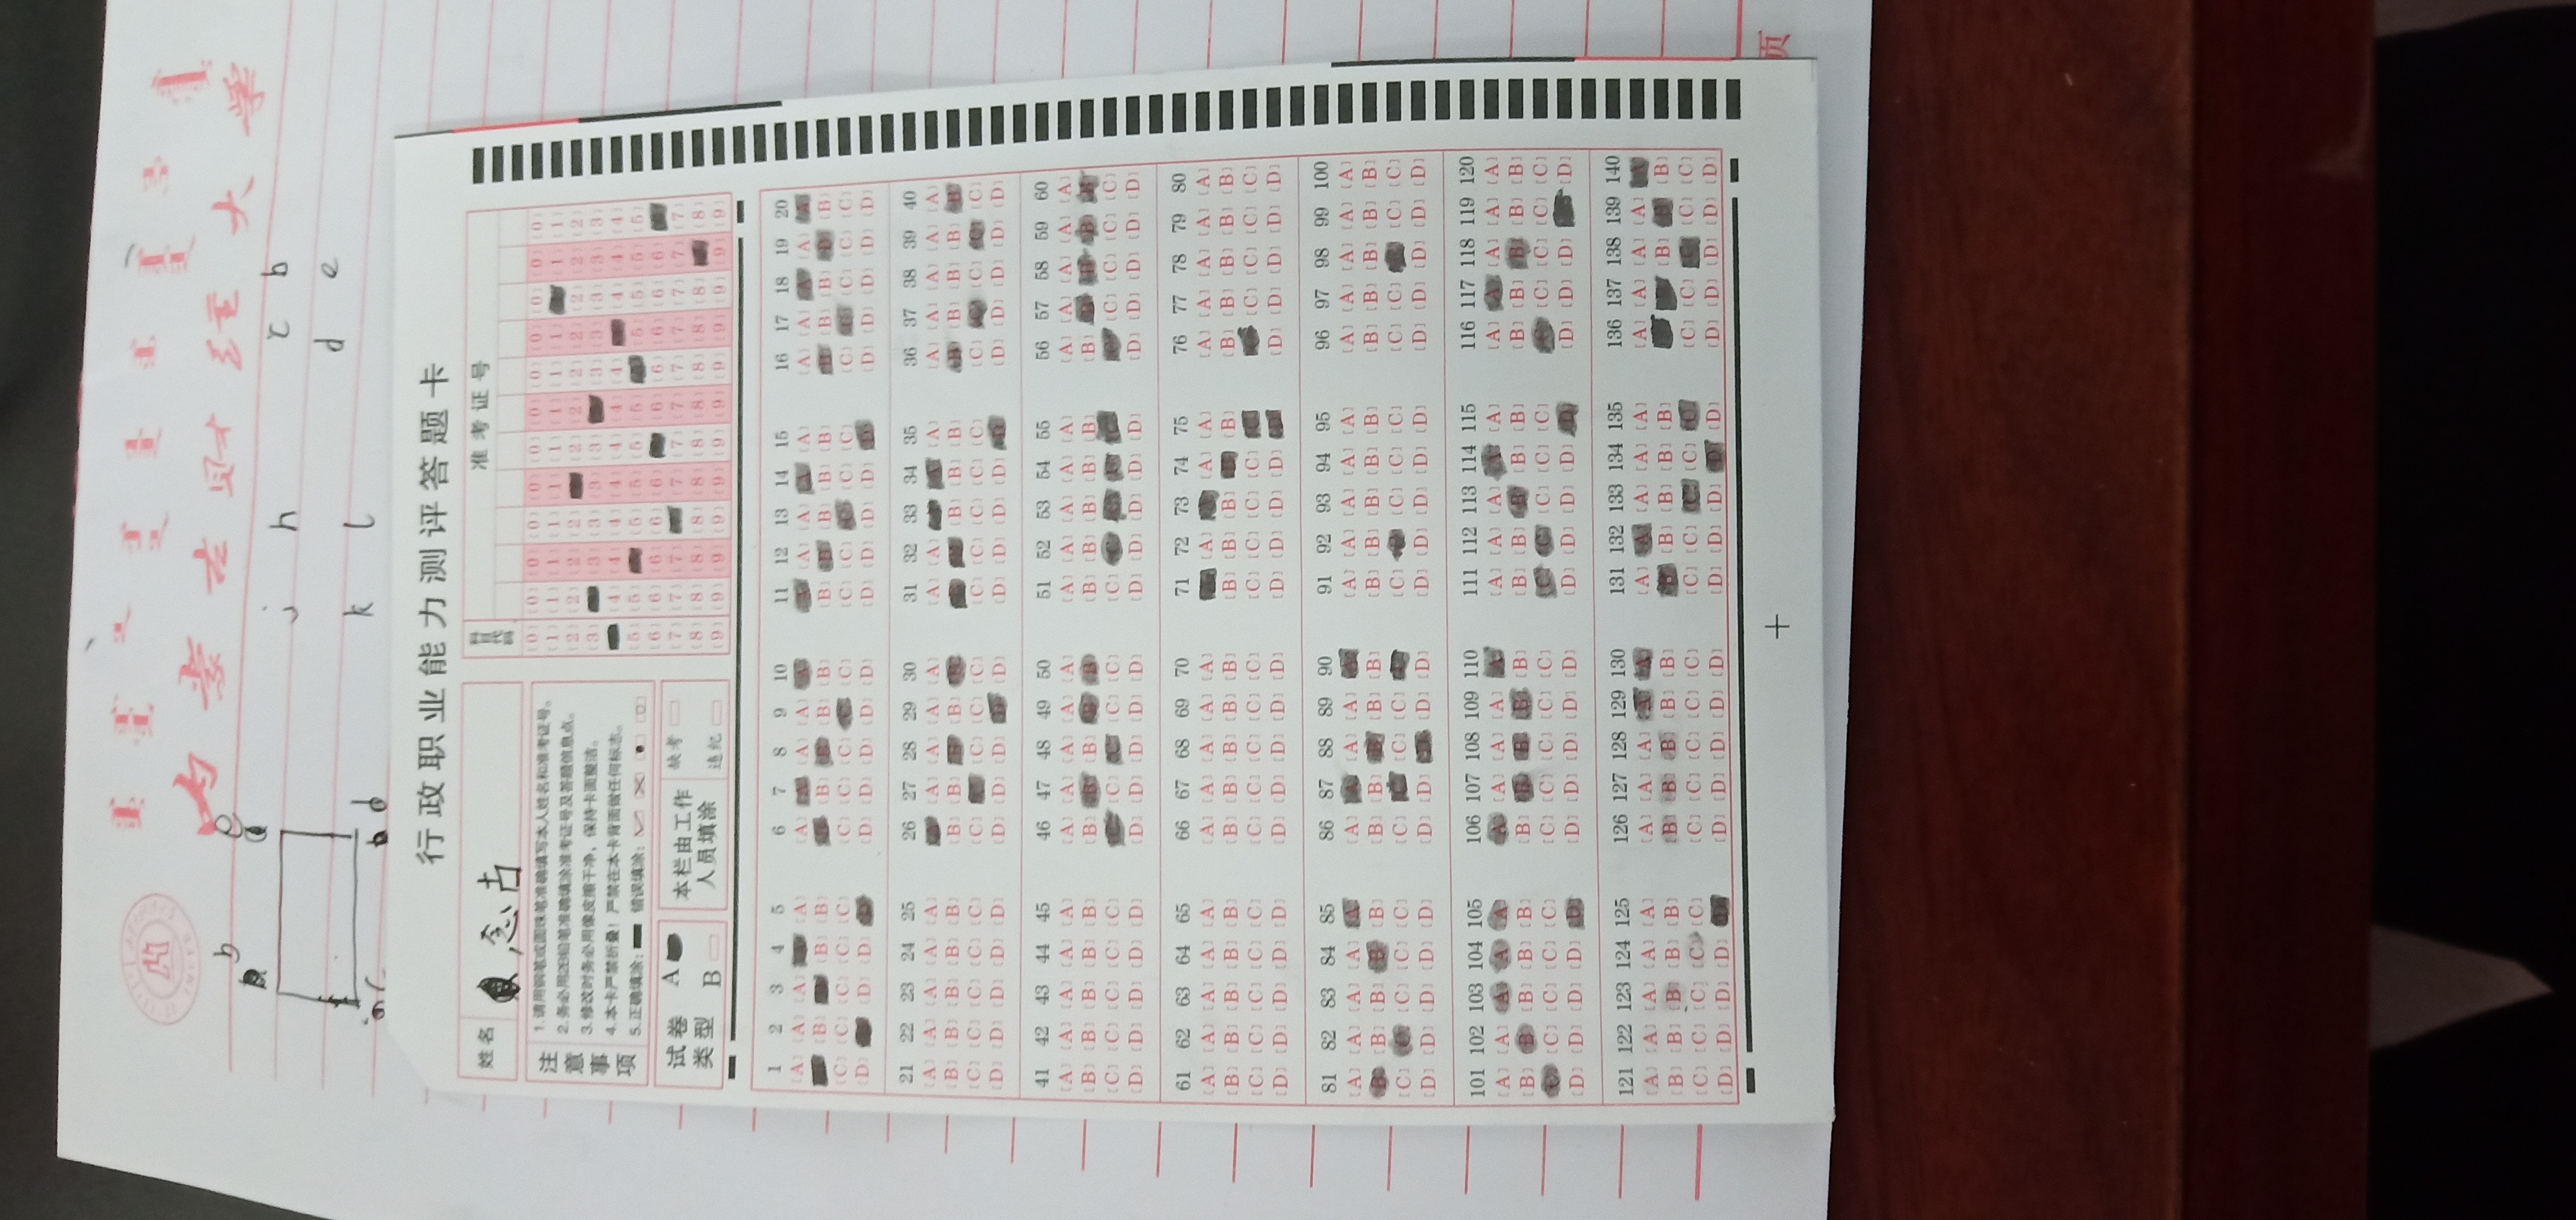 内蒙古财经大学
页
b
c
b
e
d
h
j
l
k
行政职业能力测评答题卡
姓名
念古
注意事项
1.请用钢笔或圆珠笔准确填写本人姓名和准考证号。
2.务必用2B铅笔准确填涂准考证号及答题信息点。
3.修改时务必用橡皮擦干净,保持卡面整洁。
4.本卡严禁折叠!严禁在本卡背面做任何标志。
5.正确填涂: 错误填涂:
试卷类型 A B
本栏由工作人员填涂
缺考
违纪
科目代码
准考证号
[0] [1] [2] [3] [4] [5] [6] [7] [8] [9]
1 2 3 4 5 6 7 8 9 10 11 12 13 14 15 16 17 18 19 20
[A] [B] [C] [D]
21 22 23 24 25 26 27 28 29 30 31 32 33 34 35 36 37 38 39 40
[A] [B] [C] [D]
41 42 43 44 45 46 47 48 49 50 51 52 53 54 55 56 57 58 59 60
[A] [B] [C] [D]
61 62 63 64 65 66 67 68 69 70 71 72 73 74 75 76 77 78 79 80
[A] [B] [C] [D]
81 82 83 84 85 86 87 88 89 90 91 92 93 94 95 96 97 98 99 100
[A] [B] [C] [D]
101 102 103 104 105 106 107 108 109 110 111 112 113 114 115 116 117 118 119 120
[A] [B] [C] [D]
121 122 123 124 125 126 127 128 129 130 131 132 133 134 135 136 137 138 139 140
[A] [B] [C] [D]